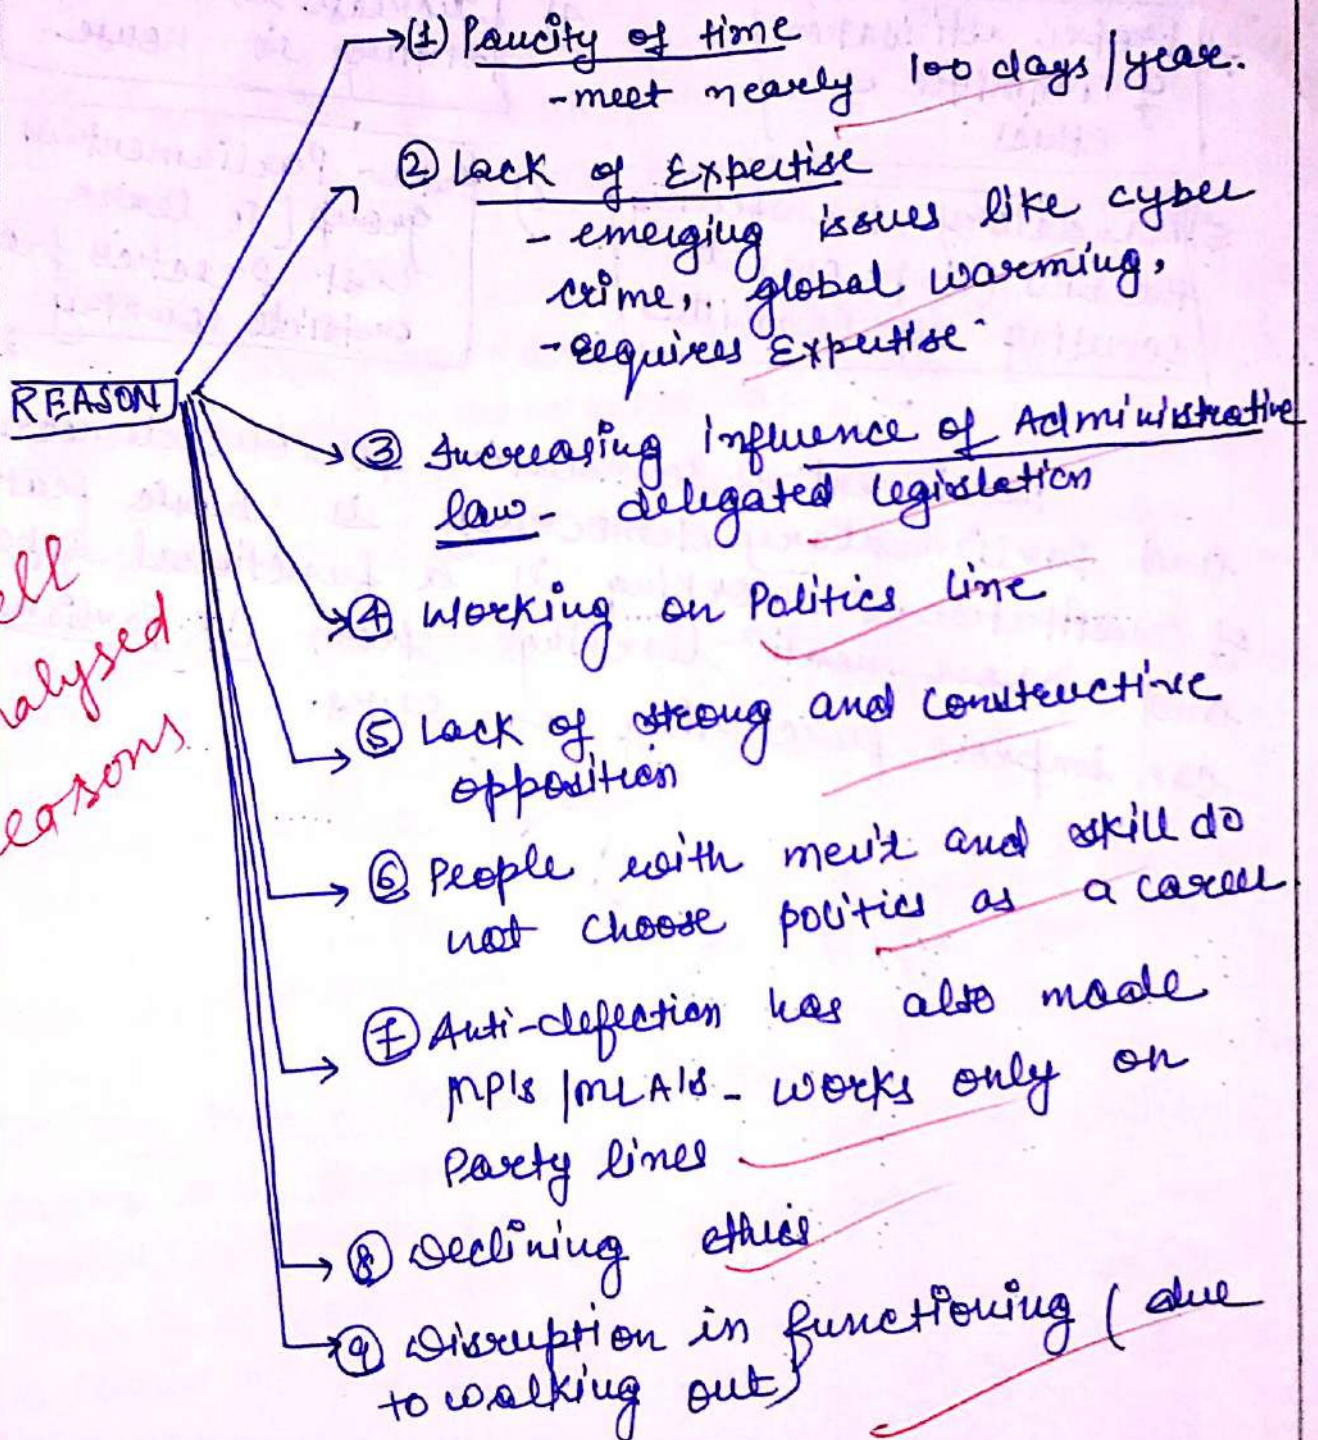 (1) Paucity of time
- meet nearly 100 days / year.
② Lack of Expertise
- emerging issues like cyber
crime, global warming,
- requires Expertise
REASON
③ Increasing influence of Administrative
law - delegated legislation
④ Working on Politics line
⑤ Lack of strong and constructive
opposition
⑥ People with merit and skill do
not choose politics as a career
⑦ Anti-defection has also made
MP's / MLA's - works only on
Party lines
⑧ Declining ethics
⑨ Disruption in functioning ( due
to walking out)